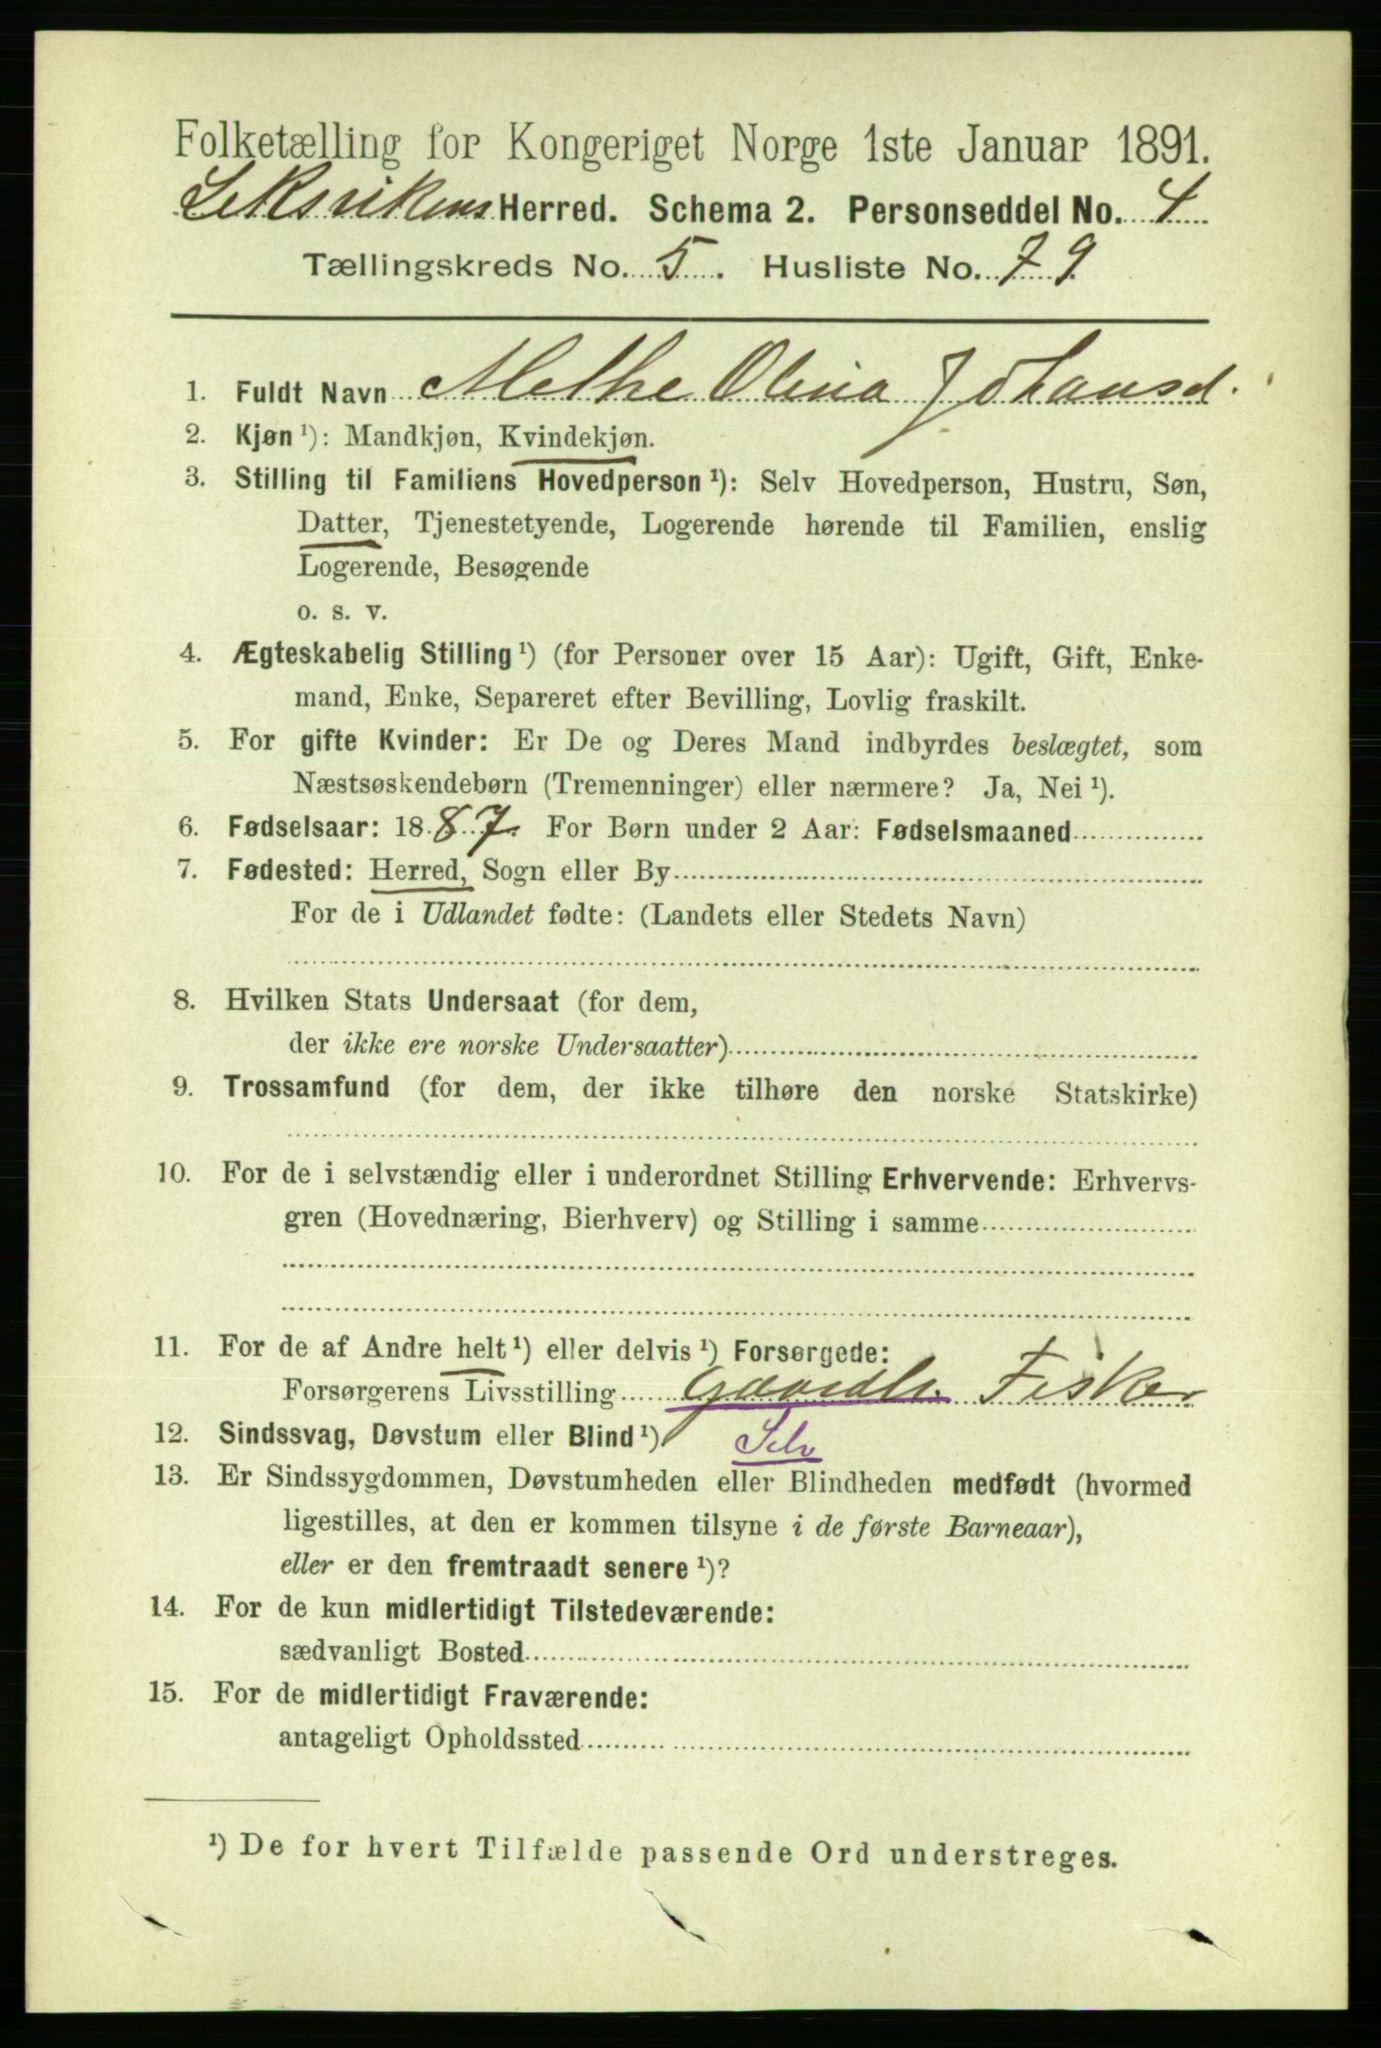 Folketælling for Kongeriget Norge 1ste Januar 1891.
Leksvikens Herred. Schema 2. Personseddel No. 4
Tællingskreds No. 5. Husliste No. 79
1. Fuldt Navn Methe Olina Johansd.
2. Kjøn ¹): Mandkjøn, Kvindekjøn.
3. Stilling til Familiens Hovedperson ¹): Selv Hovedperson, Hustru, Søn,
Datter, Tjenestetyende, Logerende hørende til Familien, enslig
Logerende, Besøgende
o. s. v.
4. Ægteskabelig Stilling ¹) (for Personer over 15 Aar): Ugift, Gift, Enke-
mand, Enke, Separeret efter Bevilling, Lovlig fraskilt.
5. For gifte Kvinder: Er De og Deres Mand indbyrdes beslægtet, som
Næstsøskendebørn (Tremenninger) eller nærmere? Ja, Nei ¹).
6. Fødselsaar: 1887. For Børn under 2 Aar: Fødselsmaaned
7. Fødested: Herred, Sogn eller By
For de i Udlandet fødte: (Landets eller Stedets Navn)
8. Hvilken Stats Undersaat (for dem,
der ikke ere norske Undersaatter)
9. Trossamfund (for dem, der ikke tilhøre den norske Statskirke)
10. For de i selvstændig eller i underordnet Stilling Erhvervende: Erhvervs-
gren (Hovednæring, Bierhverv) og Stilling i samme
11. For de af Andre helt ¹) eller delvis ¹) Forsørgede:
Forsørgerens Livsstilling Gaardbr. Fisker
12. Sindssvag, Døvstum eller Blind ¹) Selv
13. Er Sindssygdommen, Døvstumheden eller Blindheden medfødt (hvormed
ligestilles, at den er kommen tilsyne i de første Barneaar),
eller er den fremtraadt senere ¹)?
14. For de kun midlertidigt Tilstedeværende:
sædvanligt Bosted
15. For de midlertidigt Fraværende:
antageligt Opholdssted
¹) De for hvert Tilfælde passende Ord understreges.